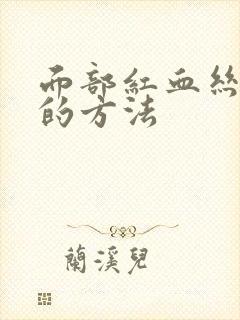 面部紅血絲
的方法
蘭溪兒